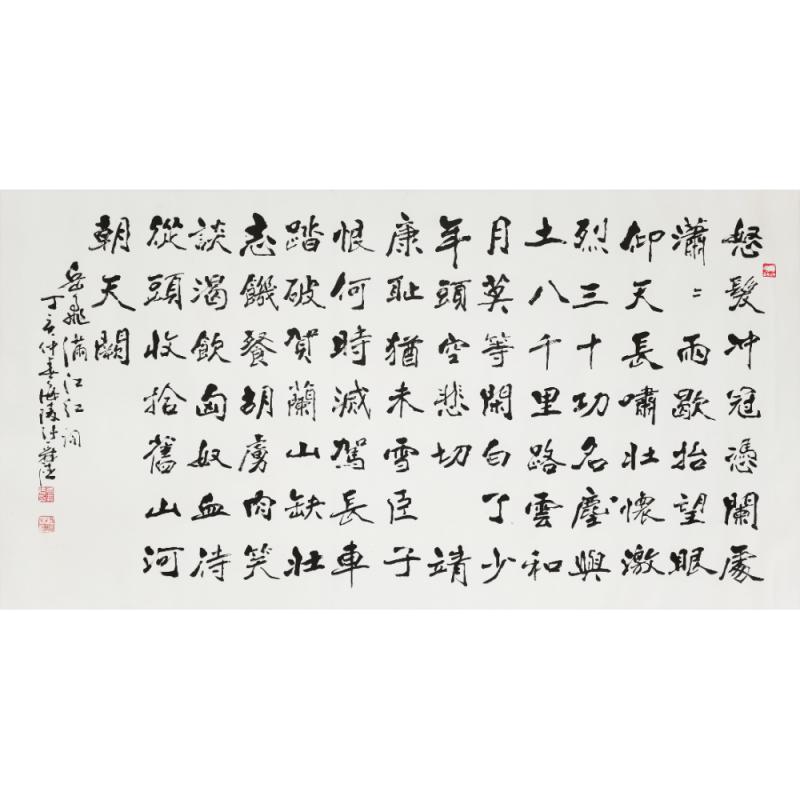 怒髮冲冠憑闌處
瀟〻雨歇抬望眼
仰天長嘯壯懷激
烈三十功名塵與
土八千里路雲和
月莫等閑白了少
年頭空悲切 靖
康耻猶未雪臣子
恨何時滅駕長車
踏破賀蘭山缺壯
志饑餐胡虜肉笑
談渴飲匈奴血待
從頭收拾舊山河
朝天闕
岳飛滿江红詞
丁亥仲春海陵